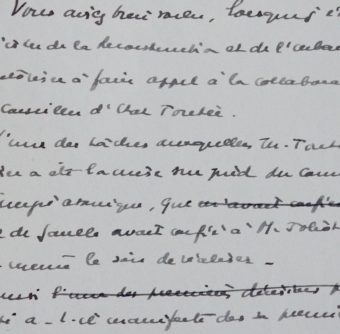 Vous aviez bien voulu, lorsque j'é
de la Reconstruction et de l'urban
à faire appel à la collabora
Conseiller d'Etat Toutée.
l'une des tâches auxquelles M. Touté
a été la mise sur pied du Com
atomique, que n'avait confié
de Gaulle avait confié à M. Joliot
le soin de réaliser -
l'une des premières décisions
a-t-il manifesté dès sa premiè